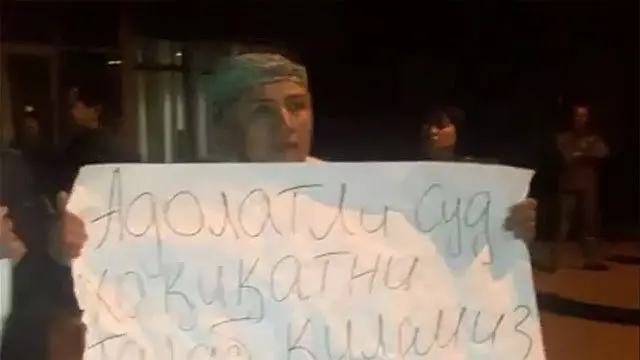 Адолатли суд
ҳақиқатни
талаб қиламиз